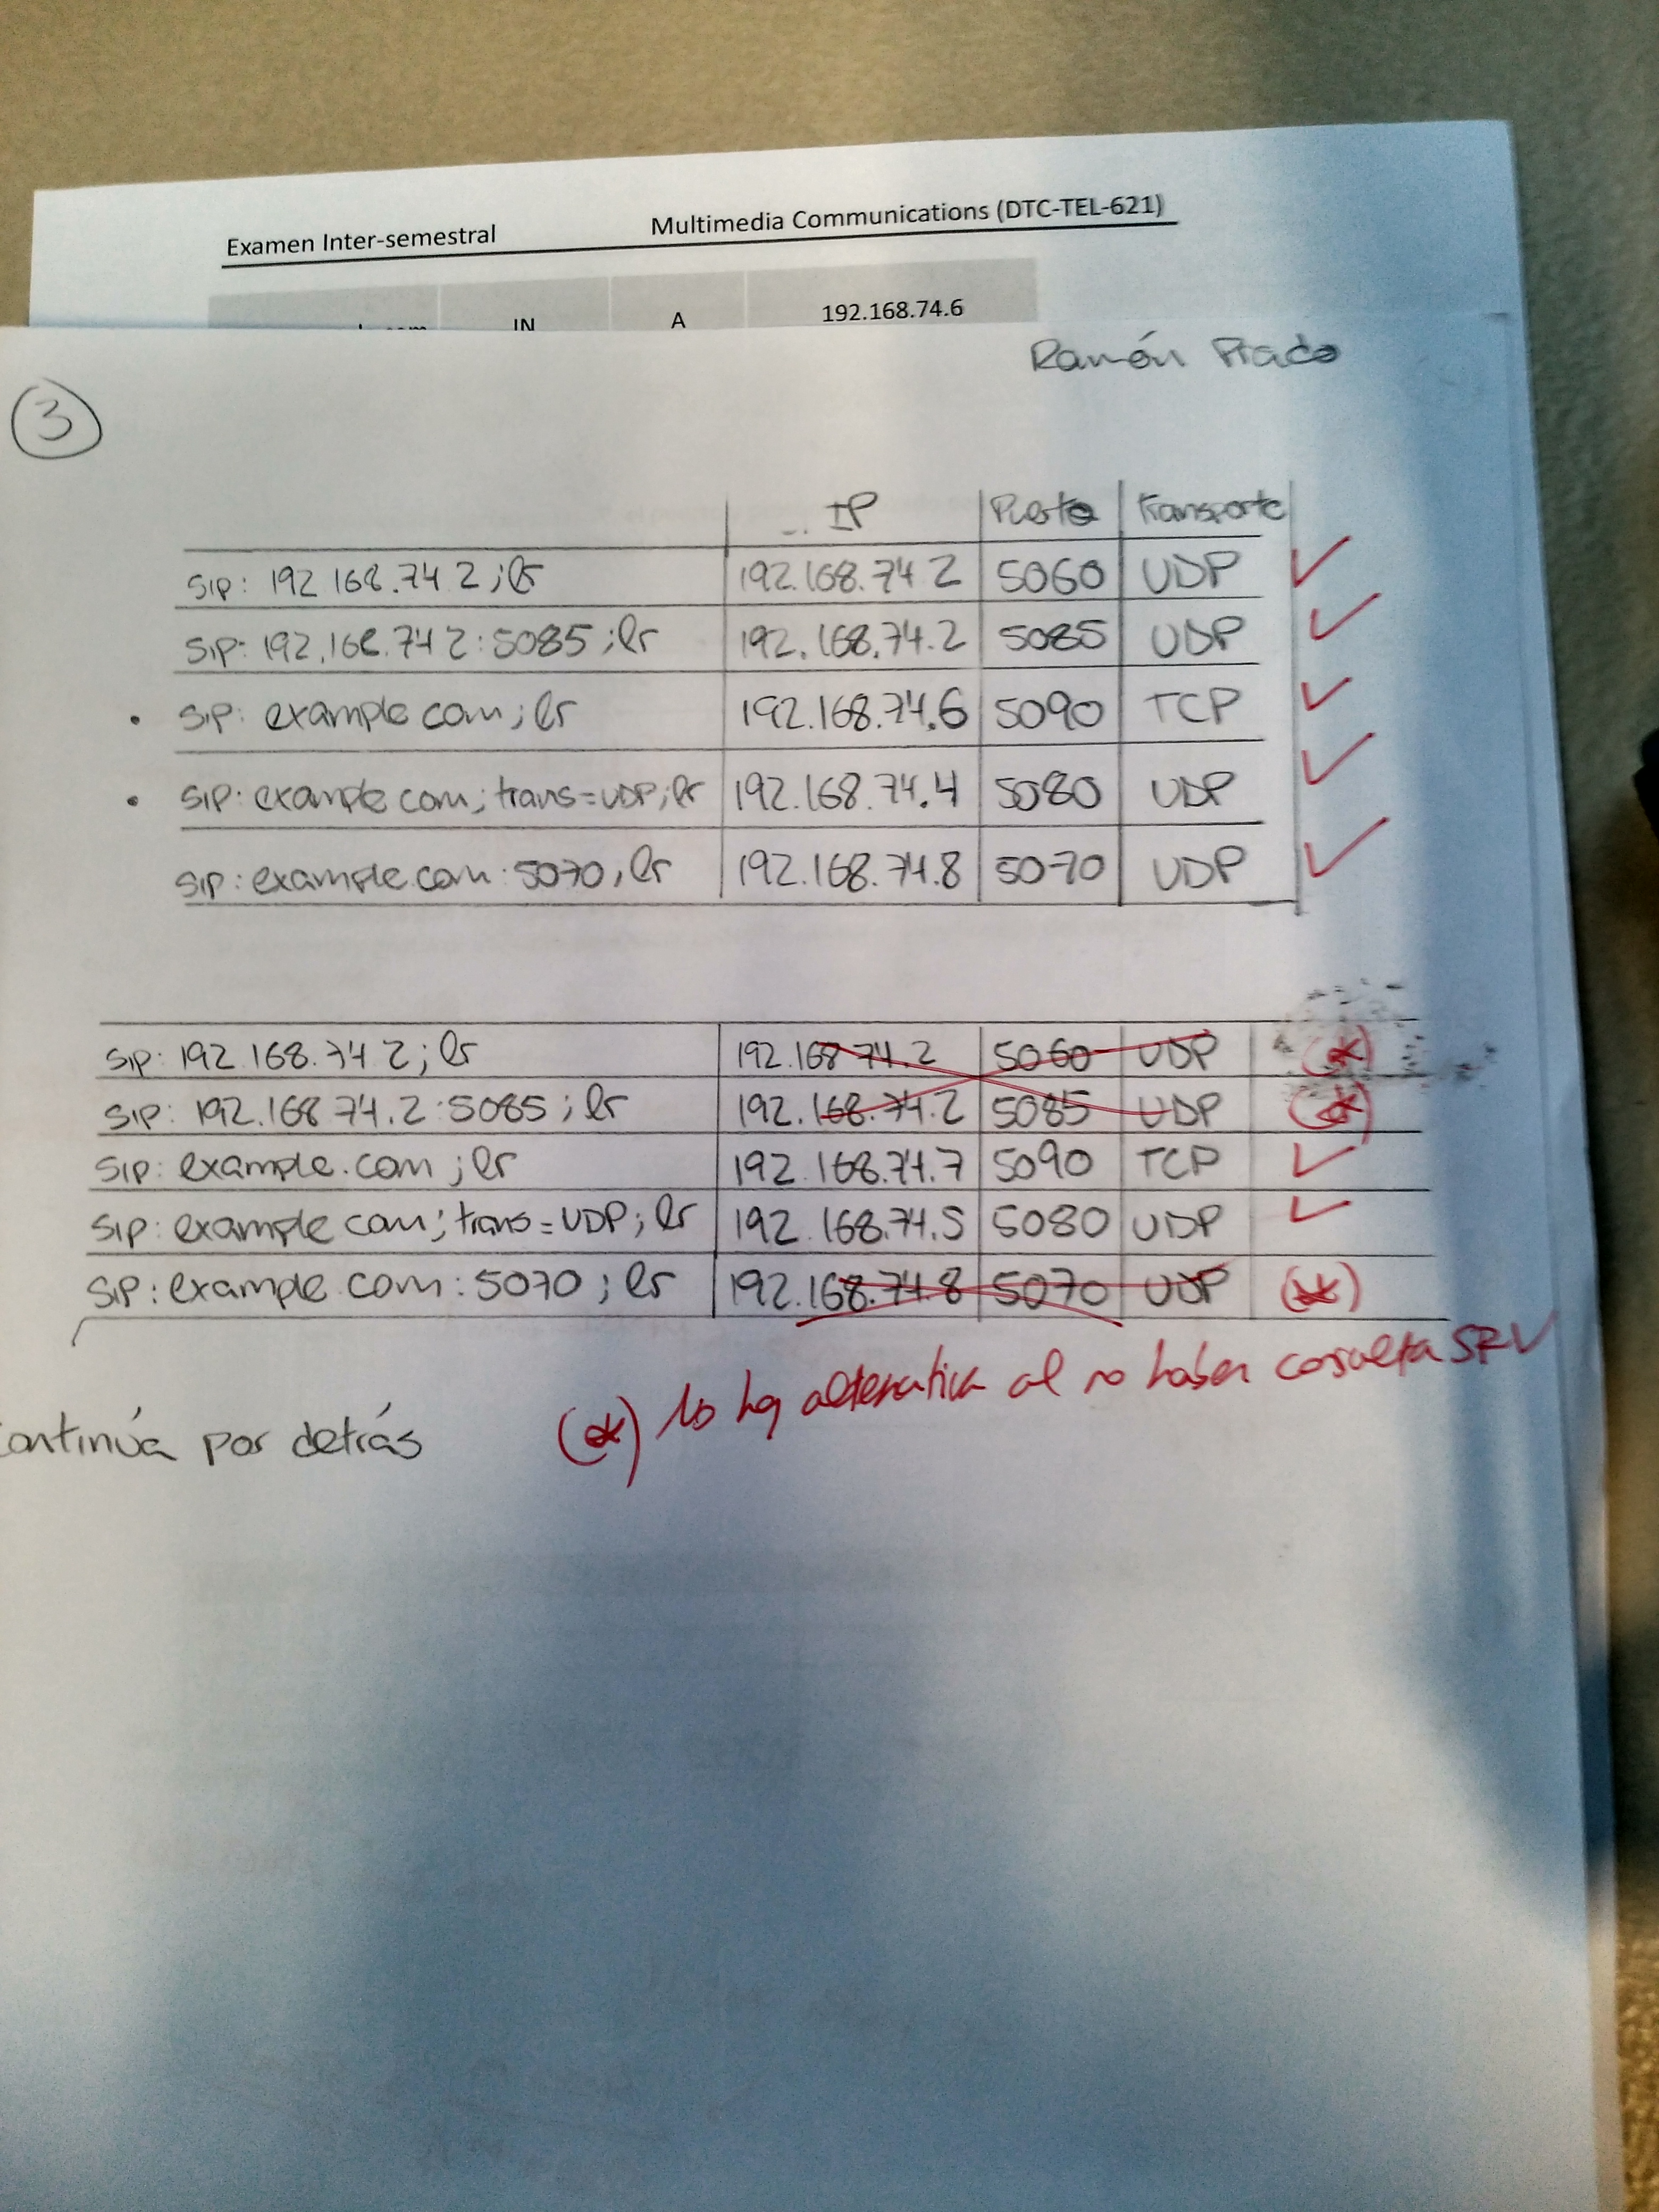 Examen Inter-semestral Multimedia Communications (DTC-TEL-621)
IN A 192.168.74.6
Ramón Prado
3
IP Puerto Transporte
sip: 192.168.74.2;lr 192.168.74.2 5060 UDP
sip: 192.168.74.2:5085;lr 192.168.74.2 5085 UDP
• sip: example.com;lr 192.168.74.6 5090 TCP
• sip: example.com;trans=UDP;lr 192.168.74.4 5080 UDP
sip: example.com:5070;lr 192.168.74.8 5070 UDP
sip: 192.168.74.2;lr 192.168.74.2 5060 UDP (*)
sip: 192.168.74.2:5085;lr 192.168.74.2 5085 UDP (*)
sip: example.com;lr 192.168.74.7 5090 TCP
sip: example.com;trans=UDP;lr 192.168.74.5 5080 UDP
sip: example.com:5070;lr 192.168.74.8 5070 UDP (*)
(*) No hay alternativa al no haber consulta SRV
Continúa por detrás